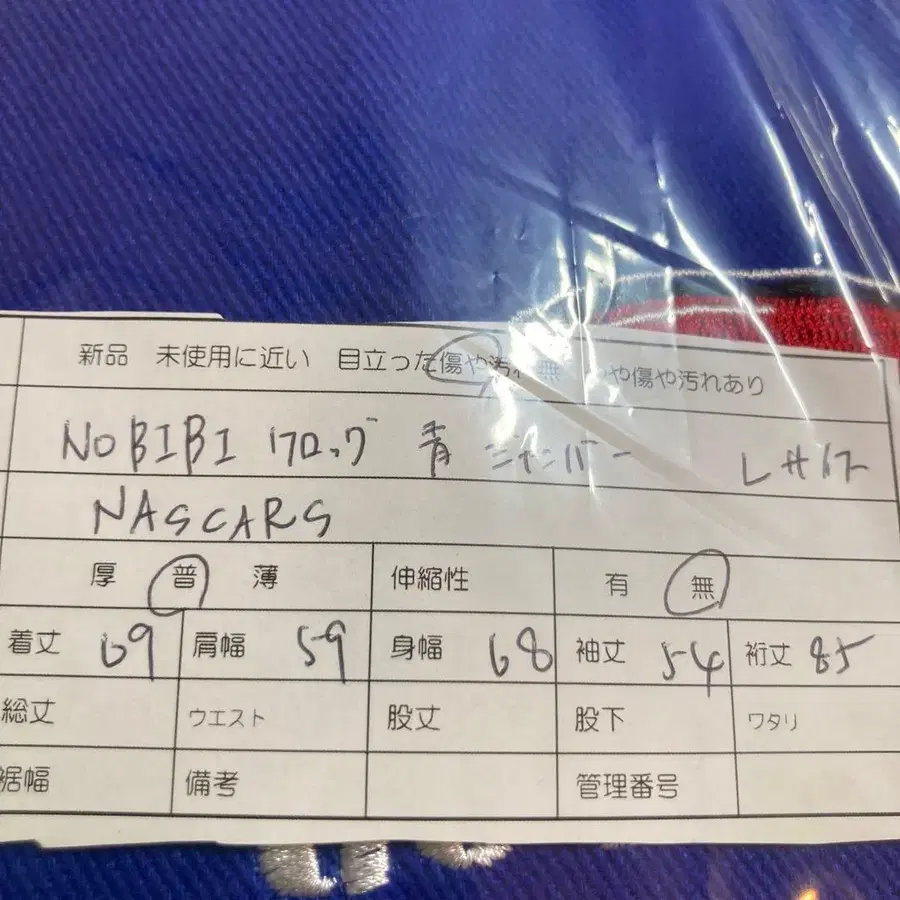 新品 未使用に近い 目立った傷や汚れ無 やや傷や汚れあり
NOBIBI ワロッグ 青 ジャンバー Lサイズ
NASCARS
厚 普 薄 伸縮性 有 無
着丈 69 肩幅 59 身幅 68 袖丈 54 裄丈 85
総丈 ウエスト 股丈 股下 ワタリ
裾幅 備考 管理番号